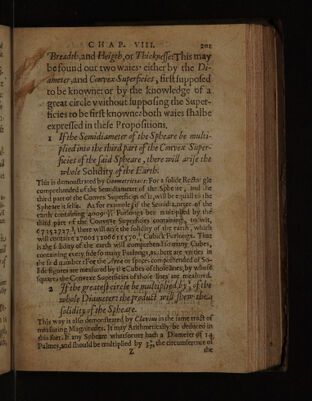 CHAP. VIII. 201
Breadth, and Heigth, or Thicknesse: This may
be found out two waies: either by the Di-
ameter, and Convex Superficies, first supposed
to be knowne: or by the knowledge of a
great circle without supposing the Super-
ficies to be first knowne: both waies shalbe
expressed in these Propositions.
1 If the Semidiameter of the Spheare be multi-
plied into the third part of the Convex Super-
ficies of the said Spheare, there will arise the
whole Solidity of the Earth.
This is demonstrated by For a solide Rectangle
comprehended of the Semidiameter of the Spheare, and the
third part of the Convex Superficies of it, will be equall to the
Spheare it selfe. As for example if the Semidiameter of the
earth containing Furlongs bee multiplied by the
third part of the Convex Superficies containing, to wit,
there will arise the solidity of the earth, which
will containe Cubick Furlongs. That
is the solidity of the earth will comprehend so many Cubes,
containing every side so many Furlongs, as there are unities in
the said number. For the or spaces comprehended of So-
lide figures are measured by the Cubes of those lines, by whose
squares the Convexe Superficies of those lines are measured.
2 If the greatest circle be multiplied by of the
whole Diameter: the product will shew the
solidity of the Spheare.
This way is also demonstrated by Clavius in the same tract of
measuring Magnitudes. It may Arithmetically be deduced in
this sort. If any Spheare whatsoever hath a Diameter of 14
Palmes, and should be multiplied by the circumference of
Z the